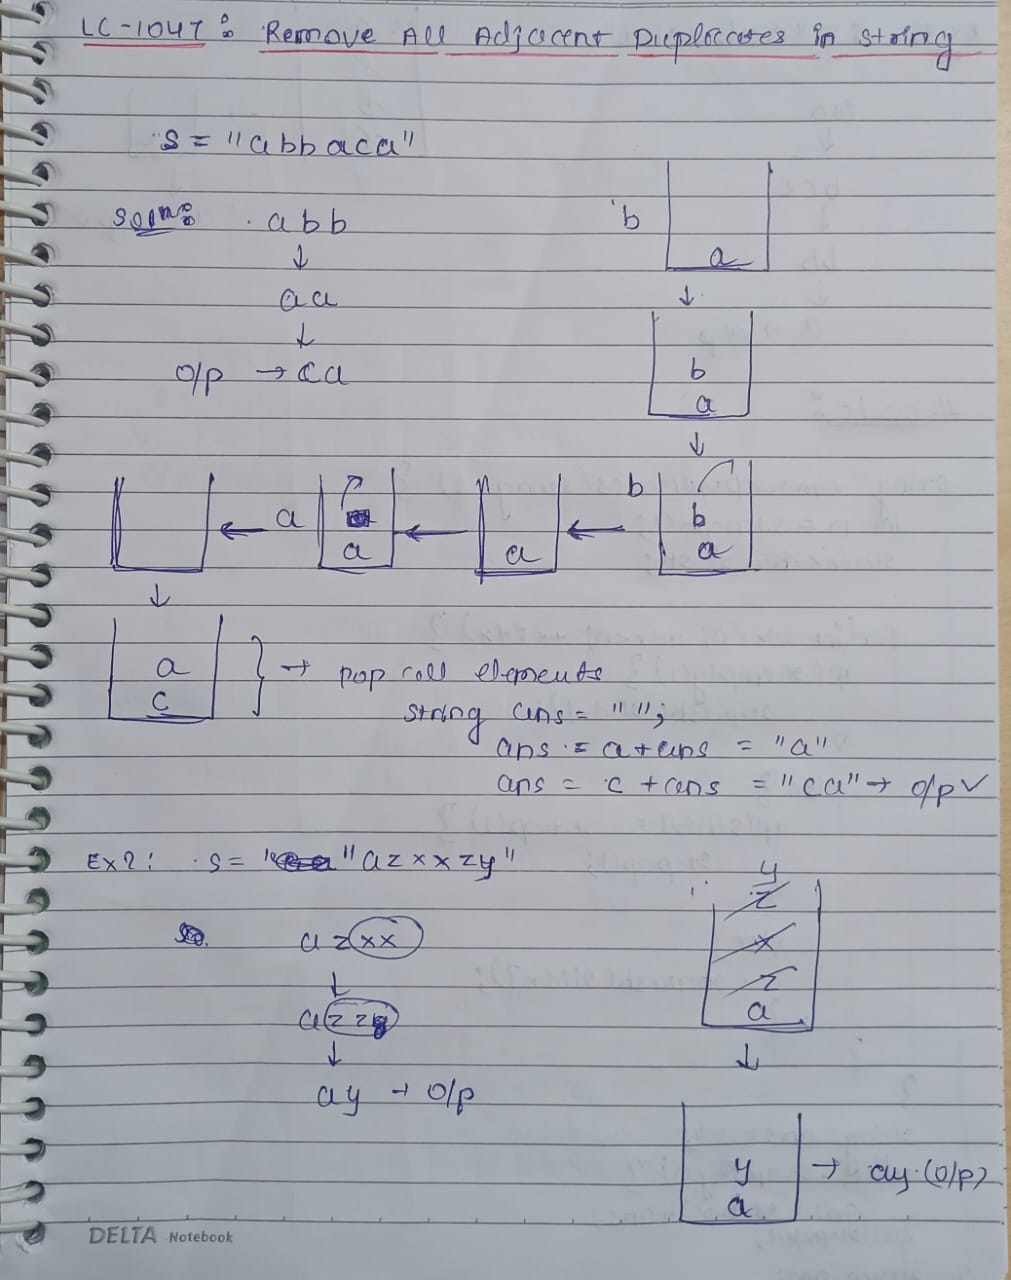 LC-1047: Remove All Adjacent Duplicates in String
s = "abbaca"
Soln: abb
b
a
↓
↓
aa
b
a
↓
O/p → ca
↓
← a
a
←
a
←
b
b
a
↓
a
c
} → pop all elements
string ans = "";
ans = a+ans = "a"
ans = c+ans = "ca" → O/p ✓
Ex2: s = "azxxzy"
y
z
x
z
a
azxx
↓
azzy
↓
↓
ay → O/p
y
a
→ ay (O/p)
DELTA Notebook